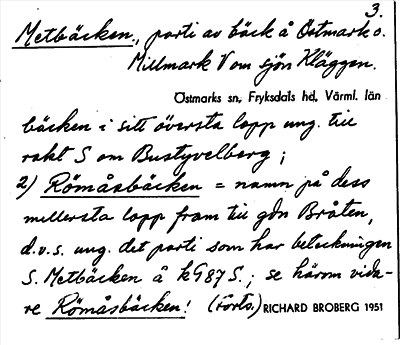 3.
Metbäcken, parti av bäck å Östmark o.
Millmark V om sjön Kläggen.
Östmarks sn, Fryksdals hd, Värml. län
bäcken i sitt översta lopp ung. till
rakt S om Bustyvelberg;
2) Römåsbäcken = namn på dess
mellersta lopp fram till gdn Bråten,
d.v.s. ung. det parti som har beteckningen
S. Metbäcken å k G 87 S.; se härom vida-
re Römåsbäcken! (Forts.) RICHARD BROBERG 1951